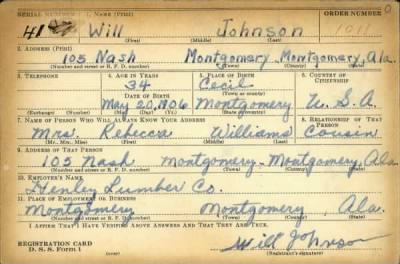 SERIAL NUMBER 1. NAME (Print) ORDER NUMBER
41 Will Johnson 1011
(First) (Middle) (Last)
2. ADDRESS (Print)
105 Nash Montgomery Montgomery, Ala.
(Number and street or R. F. D. number) (Town) (County) (State)
3. TELEPHONE 4. AGE IN YEARS 5. PLACE OF BIRTH 6. COUNTRY OF CITIZENSHIP
34 Cecil
DATE OF BIRTH (Town or county)
May 20, 1906 Montgomery U. S. A.
(Exchange) (Number) (Mo.) (Day) (Yr.) (State or country)
7. NAME OF PERSON WHO WILL ALWAYS KNOW YOUR ADDRESS 8. RELATIONSHIP OF THAT PERSON
Mrs. Rebecca Williams Cousin
(Mr., Mrs., Miss) (First) (Middle) (Last)
9. ADDRESS OF THAT PERSON
105 Nash Montgomery - Montgomery, Ala
(Number and street or R. F. D. number) (Town) (County) (State)
10. EMPLOYER'S NAME
Henley Lumber Co.
11. PLACE OF EMPLOYMENT OR BUSINESS
Montgomery Montgomery, Ala.
(Number and street or R. F. D. number) (Town) (County) (State)
I AFFIRM THAT I HAVE VERIFIED ABOVE ANSWERS AND THAT THEY ARE TRUE.
REGISTRATION CARD
D. S. S. Form 1
Will Johnson
(Registrant's signature)